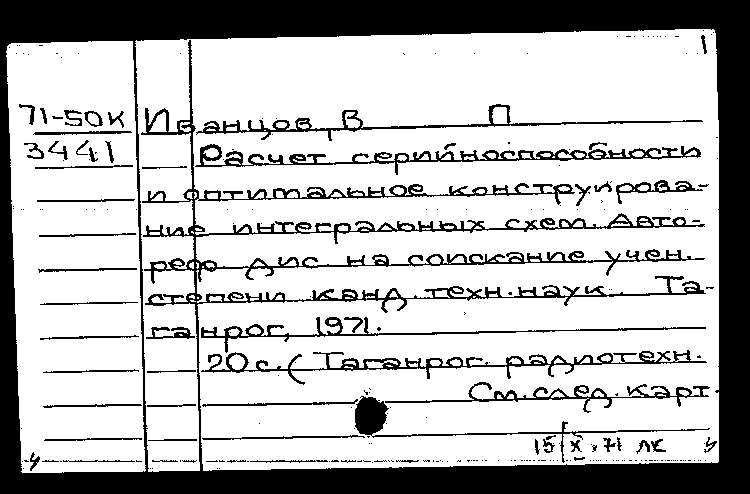 1
71-50к Иванцов, В П
3441 Расчет серийноспособности
и оптимальное конструирова-
ние интегральных схем. Авто-
реф дис. на соискание учен.
степени канд. техн. наук. Та-
ганрог, 1971.
20 с. (Таганрог. радиотехн.
См. след. карт.
15/X.71 лк